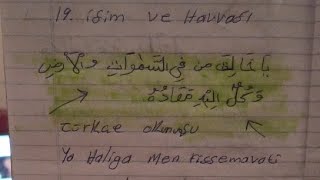 19. isim ve Havvası
يَا خَالِقَ مَنْ فِي السَّمٰوَاتِ وَالْأَرْضِ
وَكُلٌّ إِلَيْهِ مَعَادُهُ
türkçe okunuşu
Ya Haliga Men Fissemavati